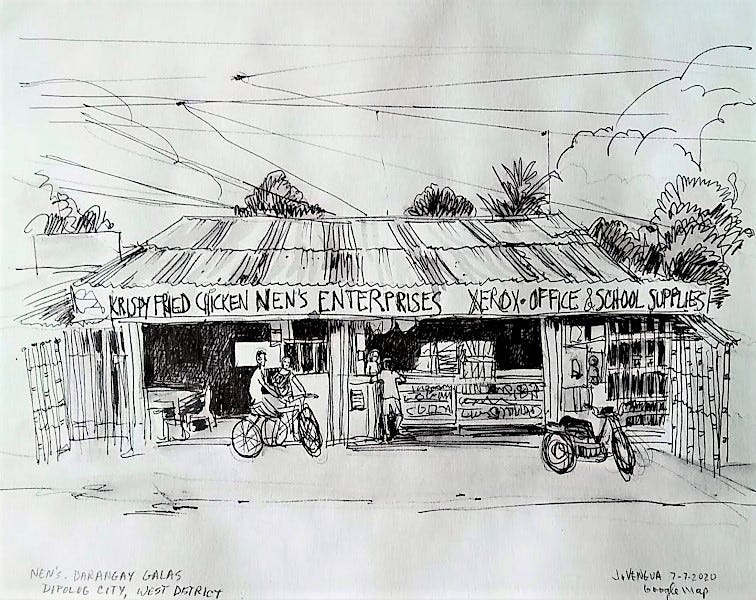 KRISPY FRIED CHICKEN NEN'S ENTERPRISES XEROX • OFFICE & SCHOOL SUPPLIES
NEN'S. BARANGAY GALAS
DIPOLOG CITY, WEST DISTRICT
J. VENGUA 7-7-2020
Google Map